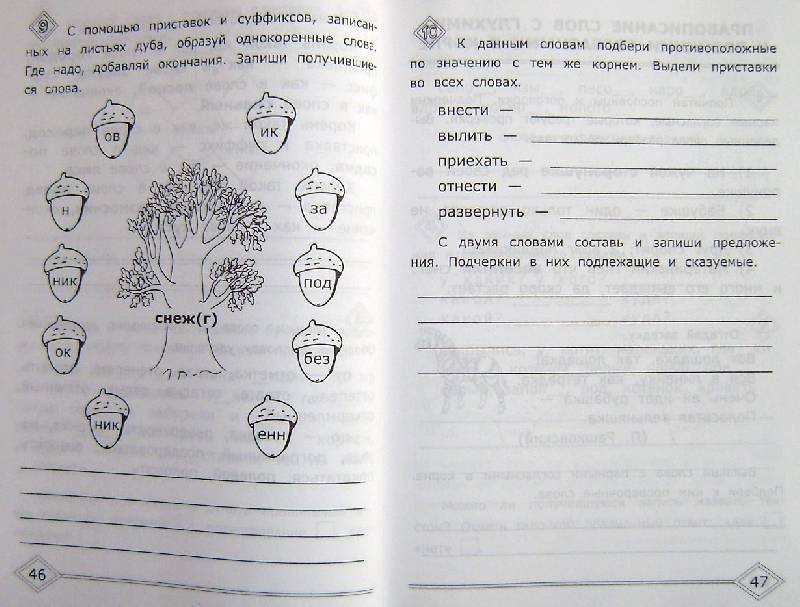 9 С помощью приставок и суффиксов, записан-
ных на листьях дуба, образуй однокоренные слова.
Где надо, добавляй окончания. Запиши получившие-
ся слова.
ов
ик
н
за
ник
под
снеж(г)
ок
без
ник
енн
46
10 К данным словам подбери противоположные
по значению с тем же корнем. Выдели приставки
во всех словах.
внести —
вылить —
приехать —
отнести —
развернуть —
С двумя словами составь и запиши предложе-
ния. Подчеркни в них подлежащие и сказуемые.
47